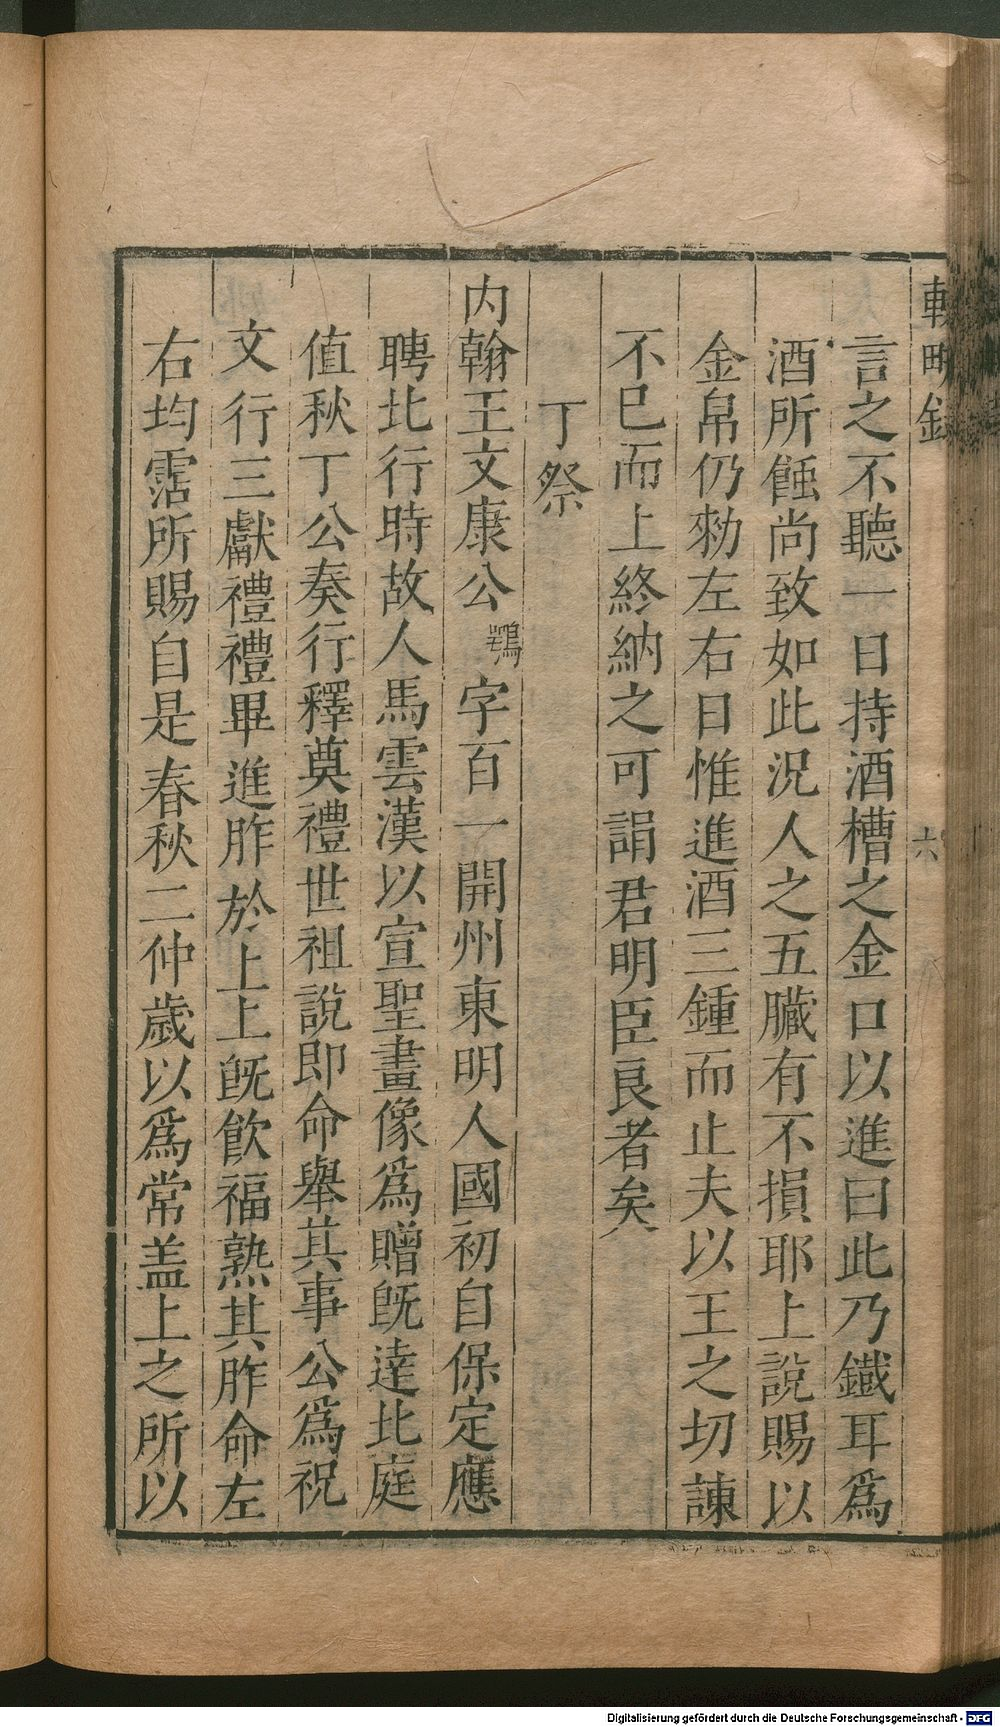 輟畊録
六
言之不聽一日持酒槽之金口以進曰此乃鐵耳爲
酒所蝕尚致如此況人之五臟有不損耶上說賜以
金帛仍勑左右日惟進酒三鍾而止夫以王之切諫
不已而上終納之可謂君明臣良者矣
丁祭
内翰王文康公鶚字百一開州東明人國初自保定應
聘北行時故人馬雲漢以宣聖畫像爲贈旣達北庭
值秋丁公奏行釋奠禮世祖說即命舉其事公爲祝
文行三獻禮禮畢進胙於上上旣飲福熟其胙命左
右均霑所賜自是春秋二仲歲以爲常盖上之所以
Digitalisierung gefördert durch die Deutsche Forschungsgemeinschaft - DFG